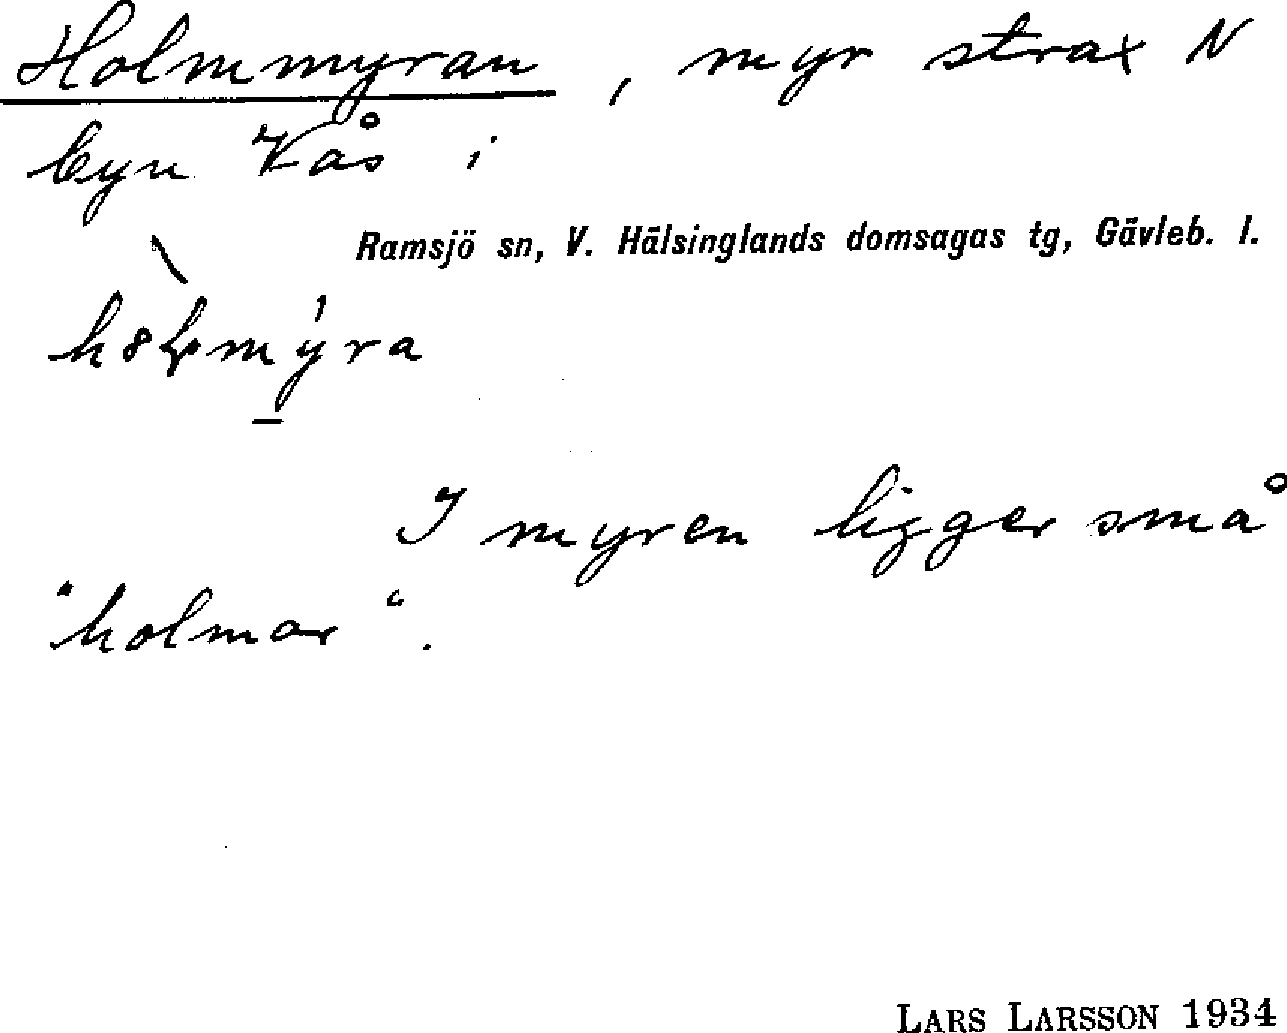 Holmmyran, myr strax N
byn Vås i
Ramsjö sn, V. Hälsinglands domsagas tg, Gävleb. l.
I myren ligger små
"holmar".
LARS LARSSON 1934